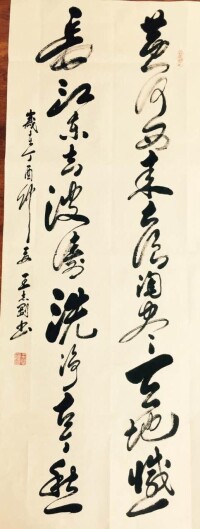 黄河西来大浪淘尽天地憾
长江东去波涛洗净古今愁
岁在丁酉仲夏王志刚书